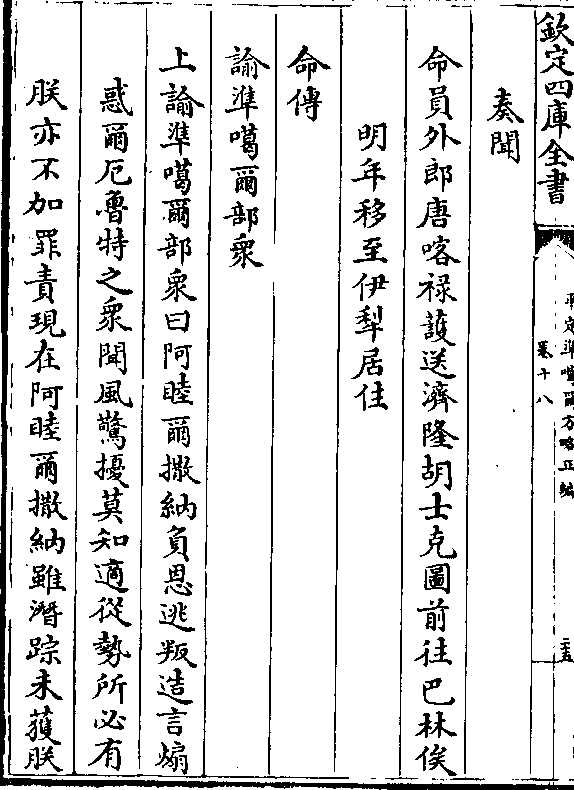 欽定四庫全書
平定準噶爾方略正編
卷十八
二十五
奏聞
命員外郎唐喀祿護送濟隆胡士克圖前往巴林俟
明年移至伊犁居住
命傳
諭準噶爾部衆
上諭準噶爾部衆曰阿睦爾撒納負恩逃叛造言煽
惑爾厄魯特之衆聞風驚擾莫知適從勢所必有
朕亦不加罪責現在阿睦爾撒納雖潛踪未獲朕